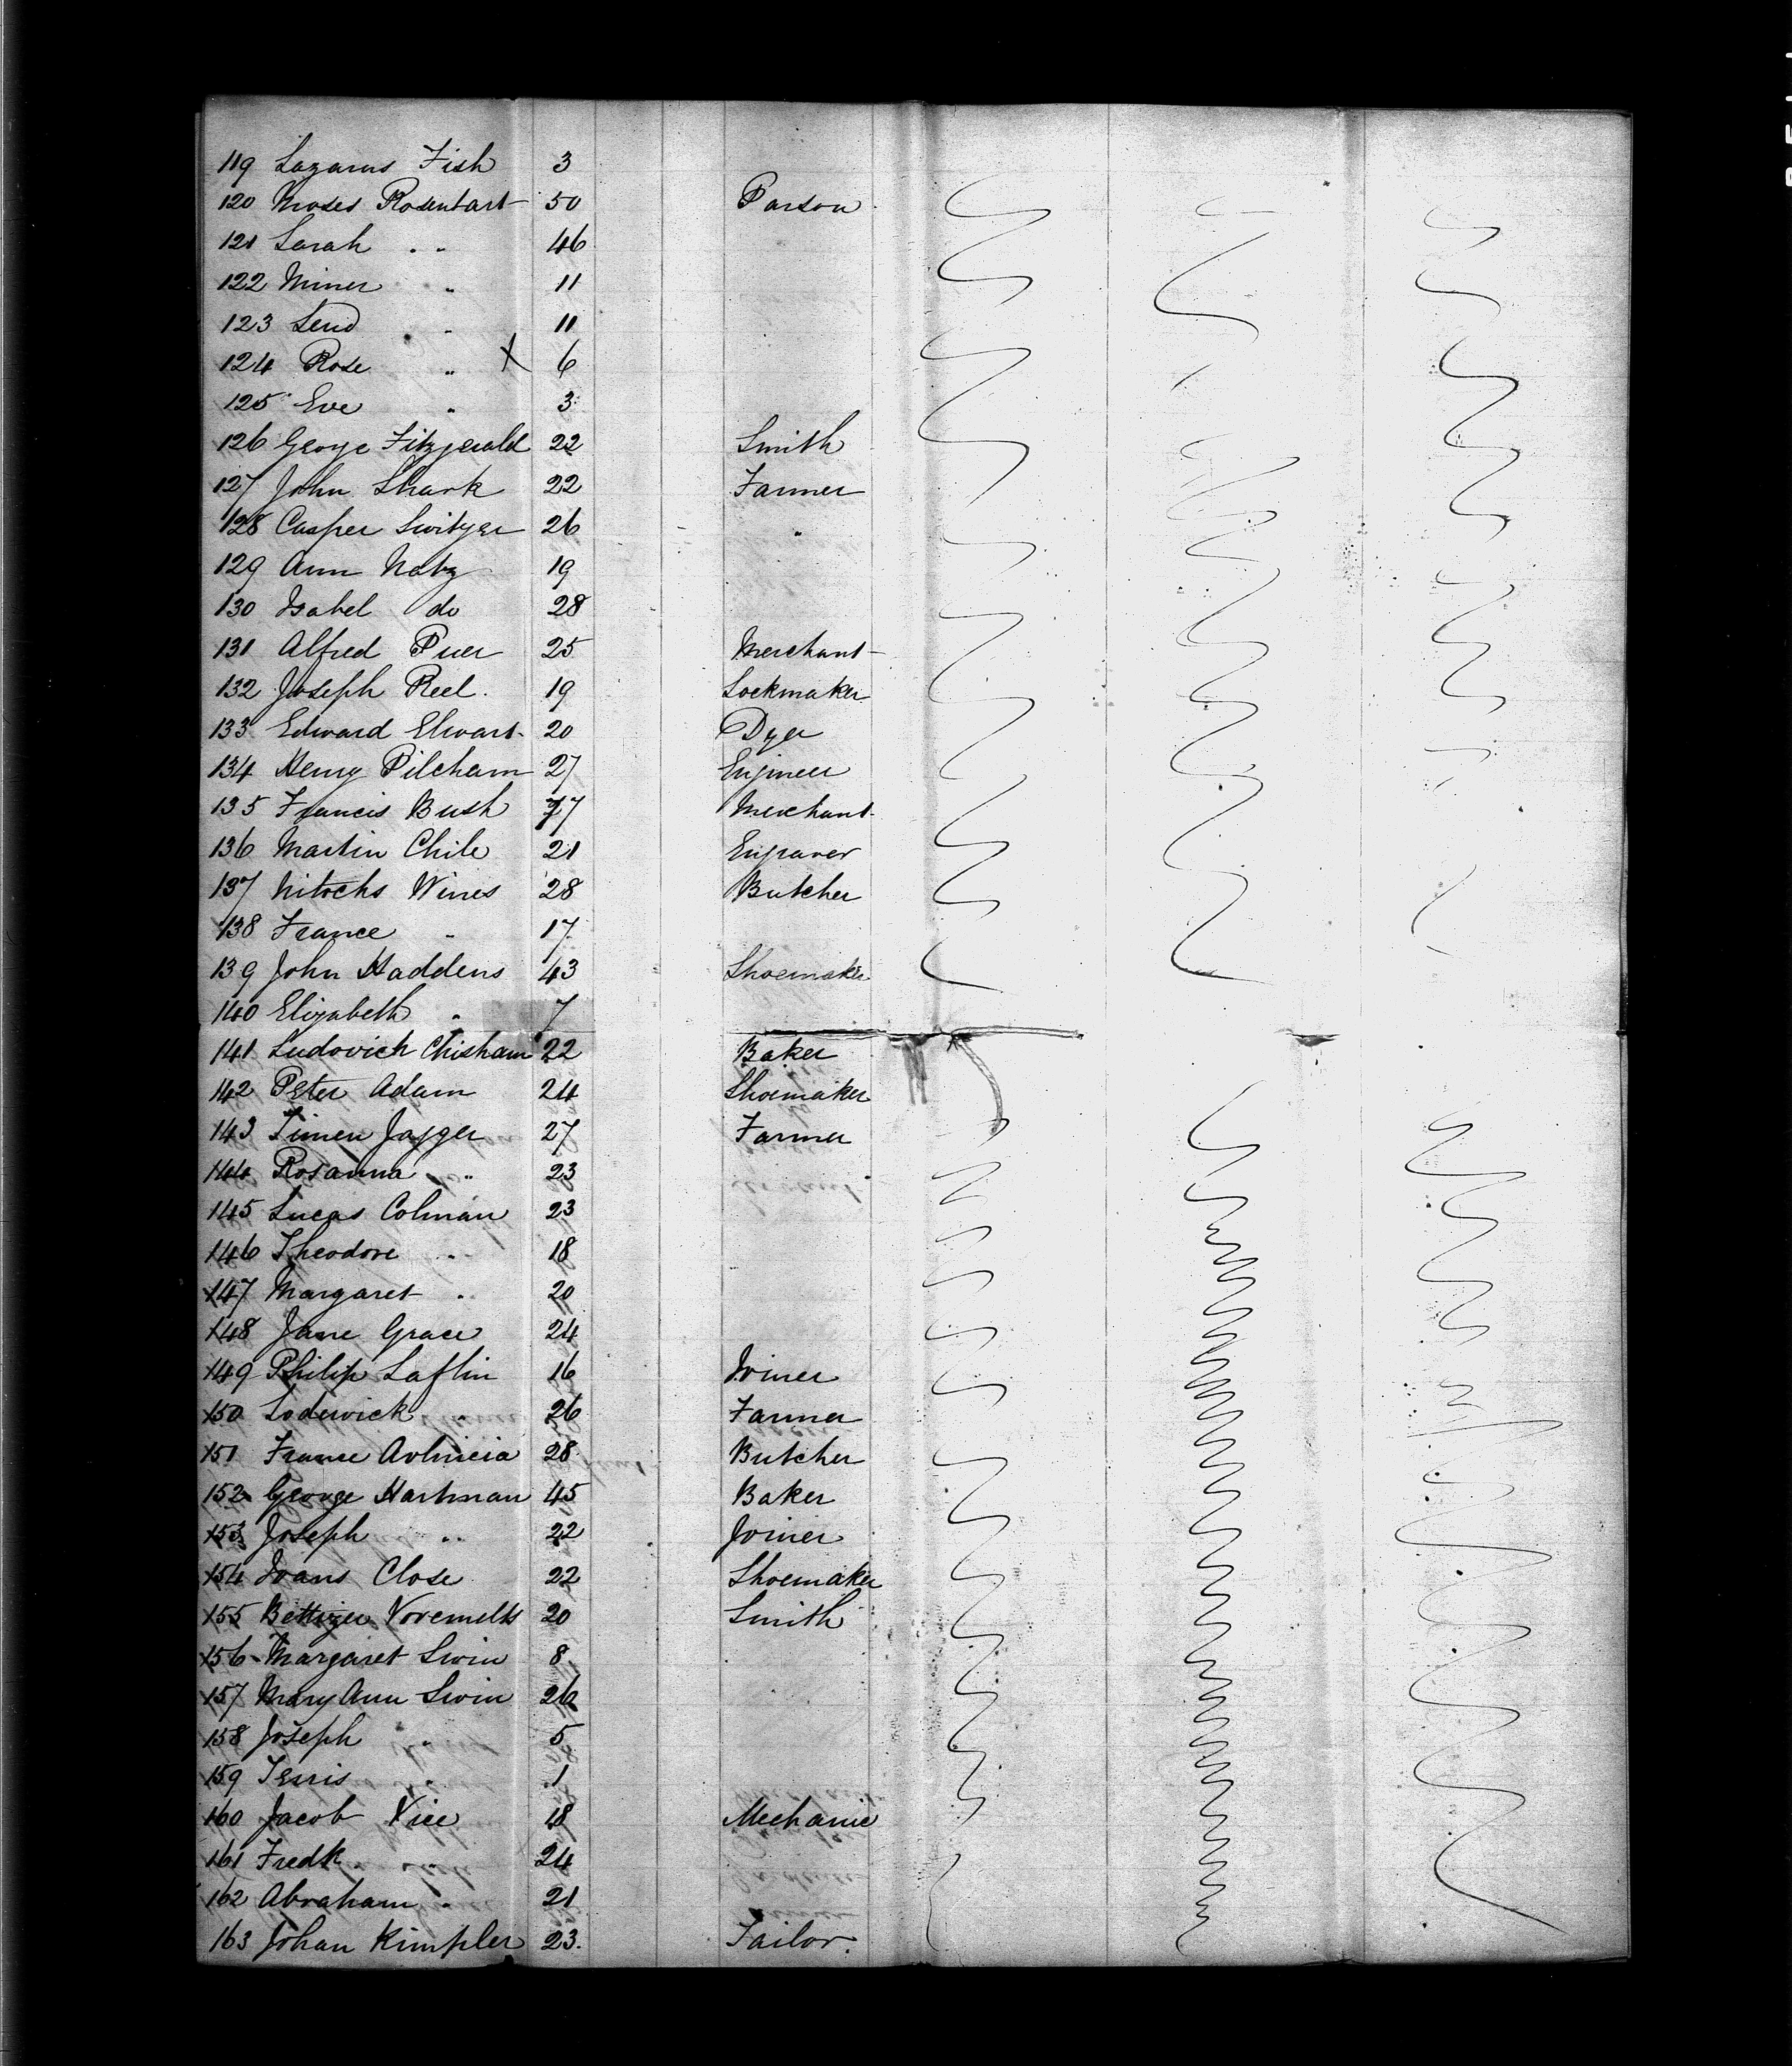 119 Lazarus Fish 3
120 Moses Rosentart 50 Parson
121 Sarah " 46
122 Miner " 11
123 Lend " 11
124 Rose " X 6
125 Eve " 3
126 George Fitzgerald 22 Smith
127 John Shark 22 Farmer
128 Casper Switzer 26 "
129 Ann Natz 19
130 Isabel do 28
131 Alfred Puer 25 Merchant
132 Joseph Reel 19 Lockmaker
133 Edward Elwart 20 Dyer
134 Henry Pilcham 27 Engineer
135 Francis Bush 27 Merchant
136 Martin Chile 21 Engraver
137 Nitochs Wines 28 Butcher
138 France " 17
139 John Haddens 43 Shoemaker
140 Elizabeth " 7
141 Ludovich Chisham 22 Baker
142 Peter Adam 24 Shoemaker
143 Timen Jasger 27 Farmer
144 Rosanna " 23
145 Lucas Colman 23
146 Theodore " 18
147 Margaret " 20
148 Jane Grace 24
149 Philip Laflin 16 Joiner
150 Loderwick " 26 Farmer
151 France 28 Butcher
152 George Hartman 45 Baker
153 Joseph " 22 Joiner
154 Ivans Close 22 Shoemaker
155 Voremelts 20 Smith
156 Margaret Swin 8
157 Mary Ann Swin 26
158 Joseph " 5
159 Terris " 1
160 Jacob Vice 18 Mechanic
161 Fredk " 24
162 Abraham " 21
163 Johan Kimpler 23. Tailor.